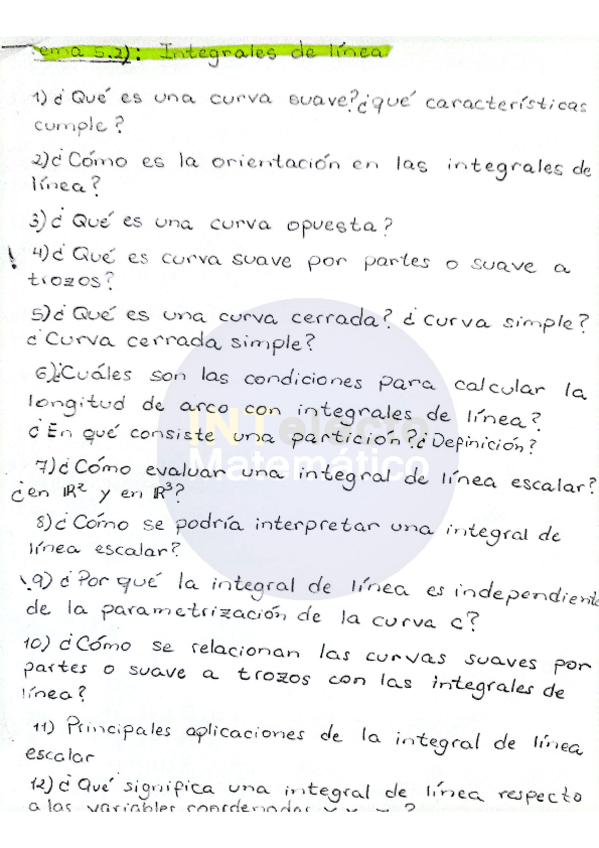 ema 5.2): Integrales de línea
1) ¿Qué es una curva suave? ¿qué características
cumple?
2) ¿Cómo es la orientación en las integrales de
línea?
3) ¿Qué es una curva opuesta?
! 4) ¿Qué es curva suave por partes o suave a
trozos?
5) ¿Qué es una curva cerrada? ¿Curva simple?
¿Curva cerrada simple?
6) ¿Cuáles son las condiciones para calcular la
longitud de arco con integrales de línea?
¿En qué consiste una partición? ¿Definición?
7) ¿Cómo evaluar una integral de línea escalar?
¿en ℝ² y en ℝ³?
8) ¿Cómo se podría interpretar una integral de
línea escalar?
9) ¿Por qué la integral de línea es independiente
de la parametrización de la curva C?
10) ¿Cómo se relacionan las curvas suaves por
partes o suave a trozos con las integrales de
línea?
11) Principales aplicaciones de la integral de línea
escalar
12) ¿Qué significa una integral de línea respecto
a las variables coordenadas
INTelecto
Matemático